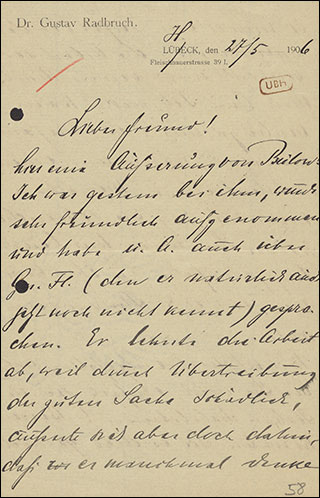 Dr. Gustav Radbruch.
H.
LÜBECK, den 27/5 1906
Fleischhauerstrasse 39 I.
UBH
Lieber Freund!
eine Äußerung von Bülow.
Ich war gestern bei ihm, wurde
sehr freundlich aufgenommen
und habe u. A. auch über
Gn. Fl. (den er natürlich auch
jetzt noch nicht kennt) gespro-
chen. Er lehnte die Arbeit
ab, weil durch Übertreibung
der guten Sache schädlich,
äußerte sich aber doch dahin,
daß er manchmal denke
58